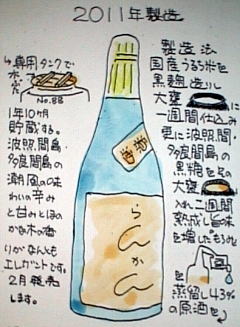 2011年製造
製造法
国産うるち米を
黒麹造りし
大甕
に
一週間仕込み
更に波照間・
多良間島の
黒糖をその
大甕
入れ二週間
熟成し旨味
を増したもろみ
を
蒸留し43%
の原酒を
専用タンクで
No.88
1年10ヶ月
貯蔵する。
波照間・
多良間島の
潮風の味
わいの辛み
と甘みとほの
かな木の香
りがなんとも
エレガントです。
2月発売
します。
らんかん